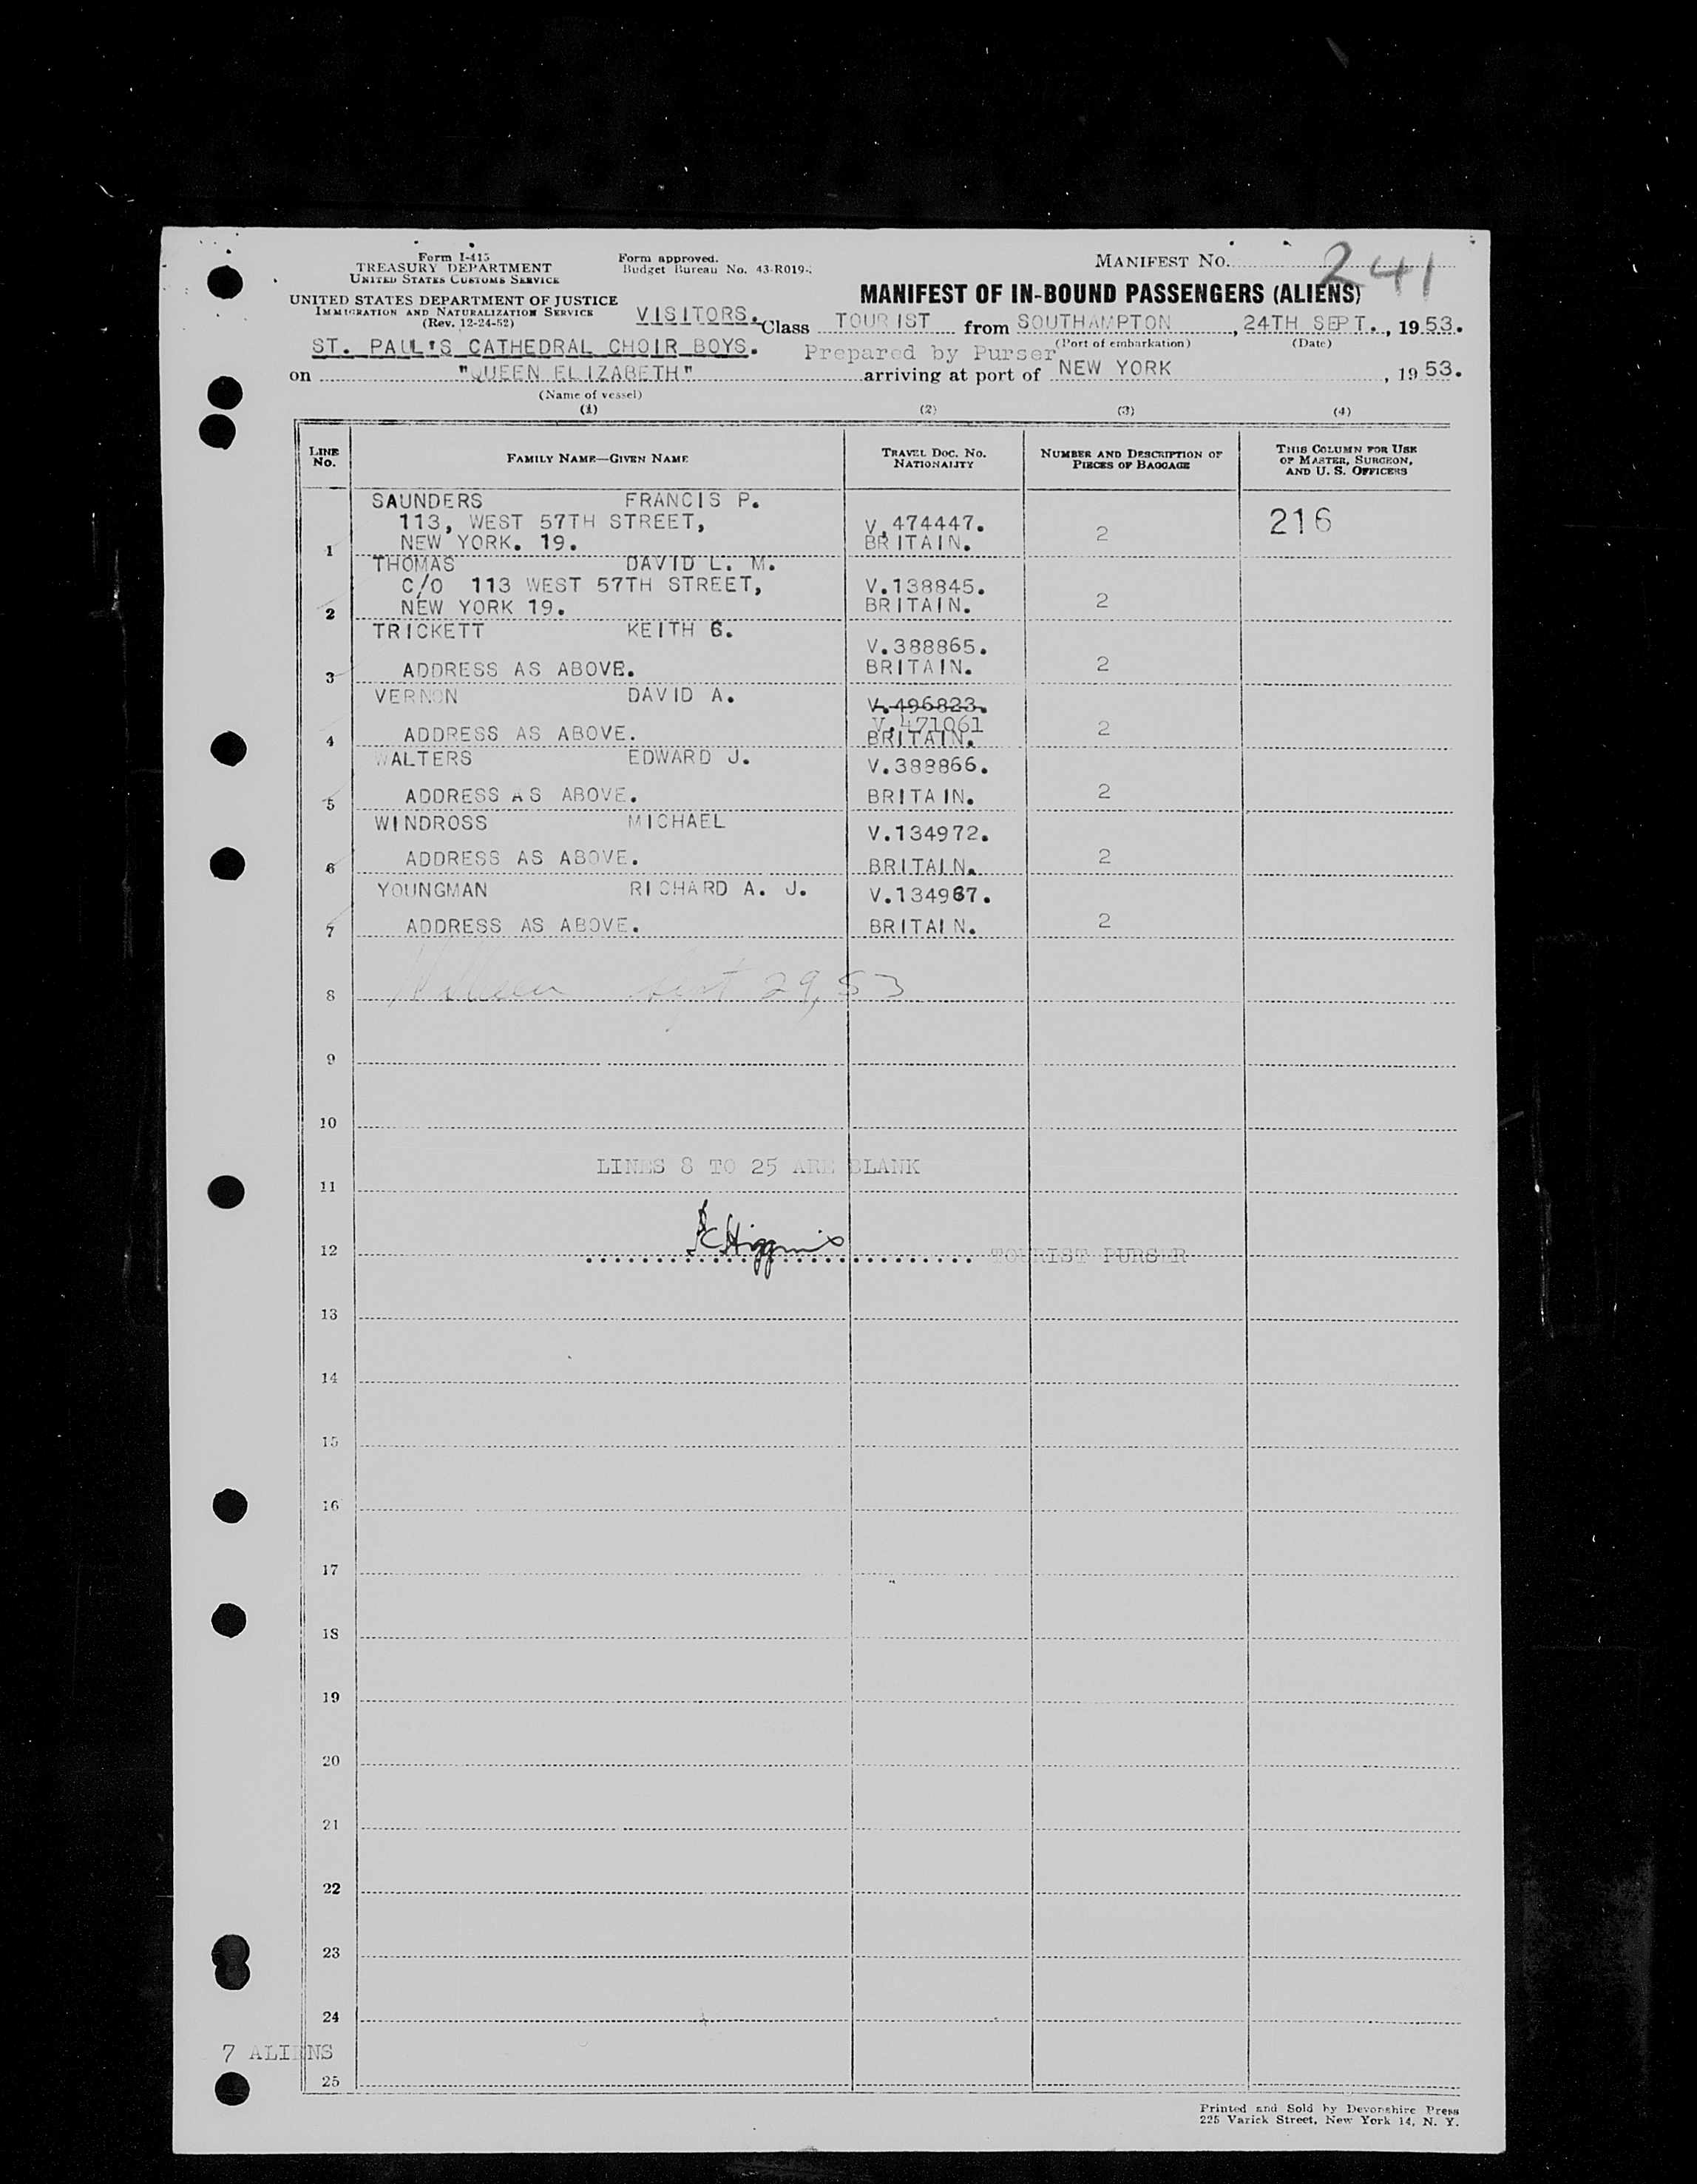 Form I-415
TREASURY DEPARTMENT
UNITED STATES CUSTOMS SERVICE
UNITED STATES DEPARTMENT OF JUSTICE
IMMIGRATION AND NATURALIZATION SERVICE
(Rev. 12-24-52)
Form approved.
Budget Bureau No. 43-R019-
MANIFEST NO. 241
MANIFEST OF IN-BOUND PASSENGERS (ALIENS)
VISITORS. Class TOURIST from SOUTHAMPTON, 24TH SEPT., 1953.
(Port of embarkation) (Date)
ST. PAUL'S CATHEDRAL CHOIR BOYS. Prepared by Purser
on "QUEEN ELIZABETH" arriving at port of NEW YORK, 1953.
(Name of vessel)
(1) (2) (3) (4)
LINE No. FAMILY NAME—GIVEN NAME TRAVEL DOC. NO. NATIONALITY NUMBER AND DESCRIPTION OF PIECES OF BAGGAGE THIS COLUMN FOR USE OF MASTER, SURGEON, AND U. S. OFFICERS
SAUNDERS FRANCIS P.
113, WEST 57TH STREET, V.474447. 2 216
1 NEW YORK. 19. BRITAIN.
THOMAS DAVID L. M.
C/O 113 WEST 57TH STREET, V.138845.
2 NEW YORK 19. BRITAIN. 2
TRICKETT KEITH G.
V.388865.
3 ADDRESS AS ABOVE. BRITAIN. 2
VERNON DAVID A. V.496823.
V.471061
4 ADDRESS AS ABOVE. BRITAIN. 2
WALTERS EDWARD J. V.388866.
5 ADDRESS AS ABOVE. BRITAIN. 2
WINDROSS MICHAEL V.134972.
6 ADDRESS AS ABOVE. BRITAIN. 2
YOUNGMAN RICHARD A. J. V.134967.
7 ADDRESS AS ABOVE. BRITAIN. 2
8 Sept 29, 53
9
10
LINES 8 TO 25 ARE BLANK
11
12 Higgins TOURIST PURSER
13
14
15
16
17
18
19
20
21
22
23
24
7 ALIENS
25
Printed and Sold by Devonshire Press
225 Varick Street, New York 14, N. Y.